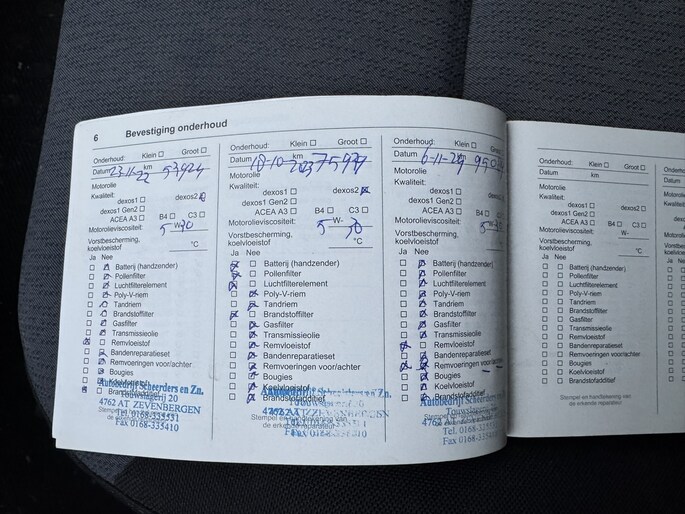 6 Bevestiging onderhoud
Onderhoud: Klein ☐ Groot ☐
Datum 23-11-22 km 53924
Motorolie
Kwaliteit:
dexos1 ☐ dexos2
dexos1 Gen2 ☐
ACEA A3 ☐ B4 ☐ C3 ☐
Motorolieviscositeit: 5 W- 30
Vorstbescherming,
koelvloeistof °C
Ja Nee
Batterij (handzender)
Pollenfilter
Luchtfilterelement
Poly-V-riem
Tandriem
Brandstoffilter
Gasfilter
Transmissieolie
Remvloeistof
Bandenreparatieset
Remvoeringen voor/achter
Bougies
Koelvloeistof
Autobedrijf Scheerders en Zn.
Touwslagerij 20
4762 AT ZEVENBERGEN
Tel. 0168-335531
Fax 0168-335410
Onderhoud: Klein ☐ Groot ☐
Datum 10-10-2023 km
Motorolie
Kwaliteit:
dexos1 ☐ dexos2 ☒
dexos1 Gen2 ☐
ACEA A3 ☐ B4 ☐ C3 ☐
Motorolieviscositeit: 5 W- 30
Vorstbescherming,
koelvloeistof °C
Ja Nee
Batterij (handzender)
Pollenfilter
Luchtfilterelement
Poly-V-riem
Tandriem
Brandstoffilter
Gasfilter
Transmissieolie
Remvloeistof
Bandenreparatieset
Remvoeringen voor/achter
Bougies
Koelvloeistof
Brandstofadditief
4762 AT ZEVENBERGEN
Stempel en handtekening van
de erkende reparateur
Onderhoud: Klein ☐ Groot ☐
Datum 6-11-24 km
Motorolie
Kwaliteit:
dexos1 ☐ dexos2
dexos1 Gen2 ☐
ACEA A3 ☐ B4 ☐ C3 ☐
Motorolieviscositeit: 5 W-
Vorstbescherming,
koelvloeistof °C
Ja Nee
Batterij (handzender)
Pollenfilter
Luchtfilterelement
Poly-V-riem
Tandriem
Brandstoffilter
Gasfilter
Transmissieolie
Remvloeistof
Bandenreparatieset
Remvoeringen voor/achter
Bougies
Koelvloeistof
Brandstofadditief
Autobedrijf Scheerders
Touwslagerij
4762 AT ZEVENBERGEN
Tel. 0168-3355
Fax 0168-335410
Onderhoud: Klein ☐ Groot ☐
Datum km
Motorolie
Kwaliteit:
dexos1 ☐ dexos2 ☐
dexos1 Gen2 ☐
ACEA A3 ☐ B4 ☐ C3 ☐
Motorolieviscositeit: W-
Vorstbescherming,
koelvloeistof °C
Ja Nee
☐ ☐ Batterij (handzender)
☐ ☐ Pollenfilter
☐ ☐ Luchtfilterelement
☐ ☐ Poly-V-riem
☐ ☐ Tandriem
☐ ☐ Brandstoffilter
☐ ☐ Gasfilter
☐ ☐ Transmissieolie
☐ ☐ Remvloeistof
☐ ☐ Bandenreparatieset
☐ ☐ Remvoeringen voor/achter
☐ ☐ Bougies
☐ ☐ Koelvloeistof
☐ ☐ Brandstofadditief
Stempel en handtekening van
de erkende reparateur